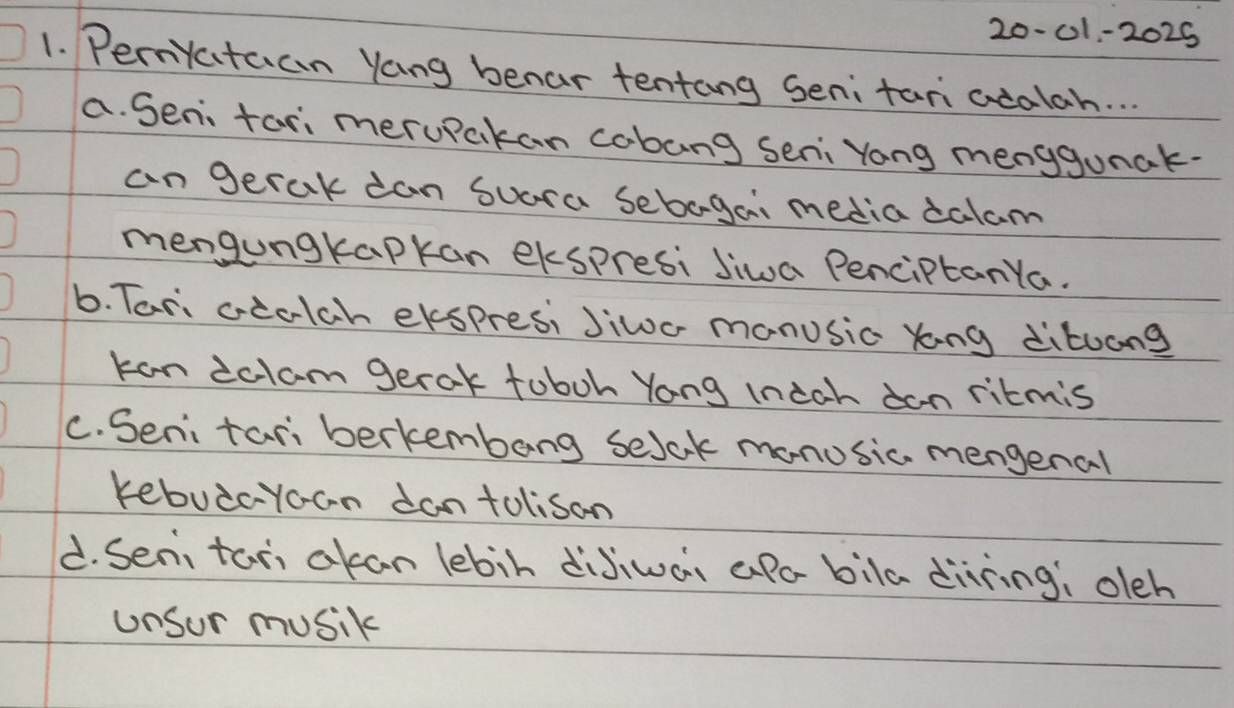 20-01.-2025
1. Pernyataan yang benar tentang Seni tari adalah...
a. Seni tari merupakan cabang seni yang menggunak-
an gerak dan suara sebagai media dalam
mengungkapkan ekspresi jiwa Penciptanya.
b. Tari adalah ekspresi jiwa manusia yang dituang
kan dalam gerak tubuh yang indah dan ritmis
c. Seni tari berkembang sejak manusia mengenal
kebudayaan dan tulisan
d. Seni tari akan lebih dijiwai apa bila diiringi oleh
unsur musik